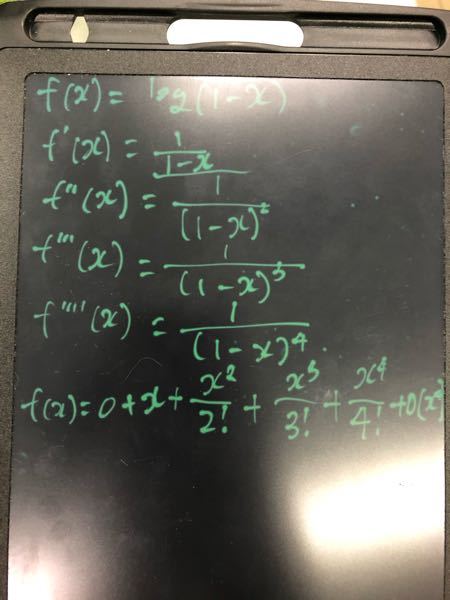 f(x) = log(1-x)
f'(x) = 1/(1-x)
f''(x) = 1/(1-x)²
f'''(x) = 1/(1-x)³
f''''(x) = 1/(1-x)⁴.
f(x) = 0 + x + x²/2! + x³/3! + x⁴/4! + o(x⁴)